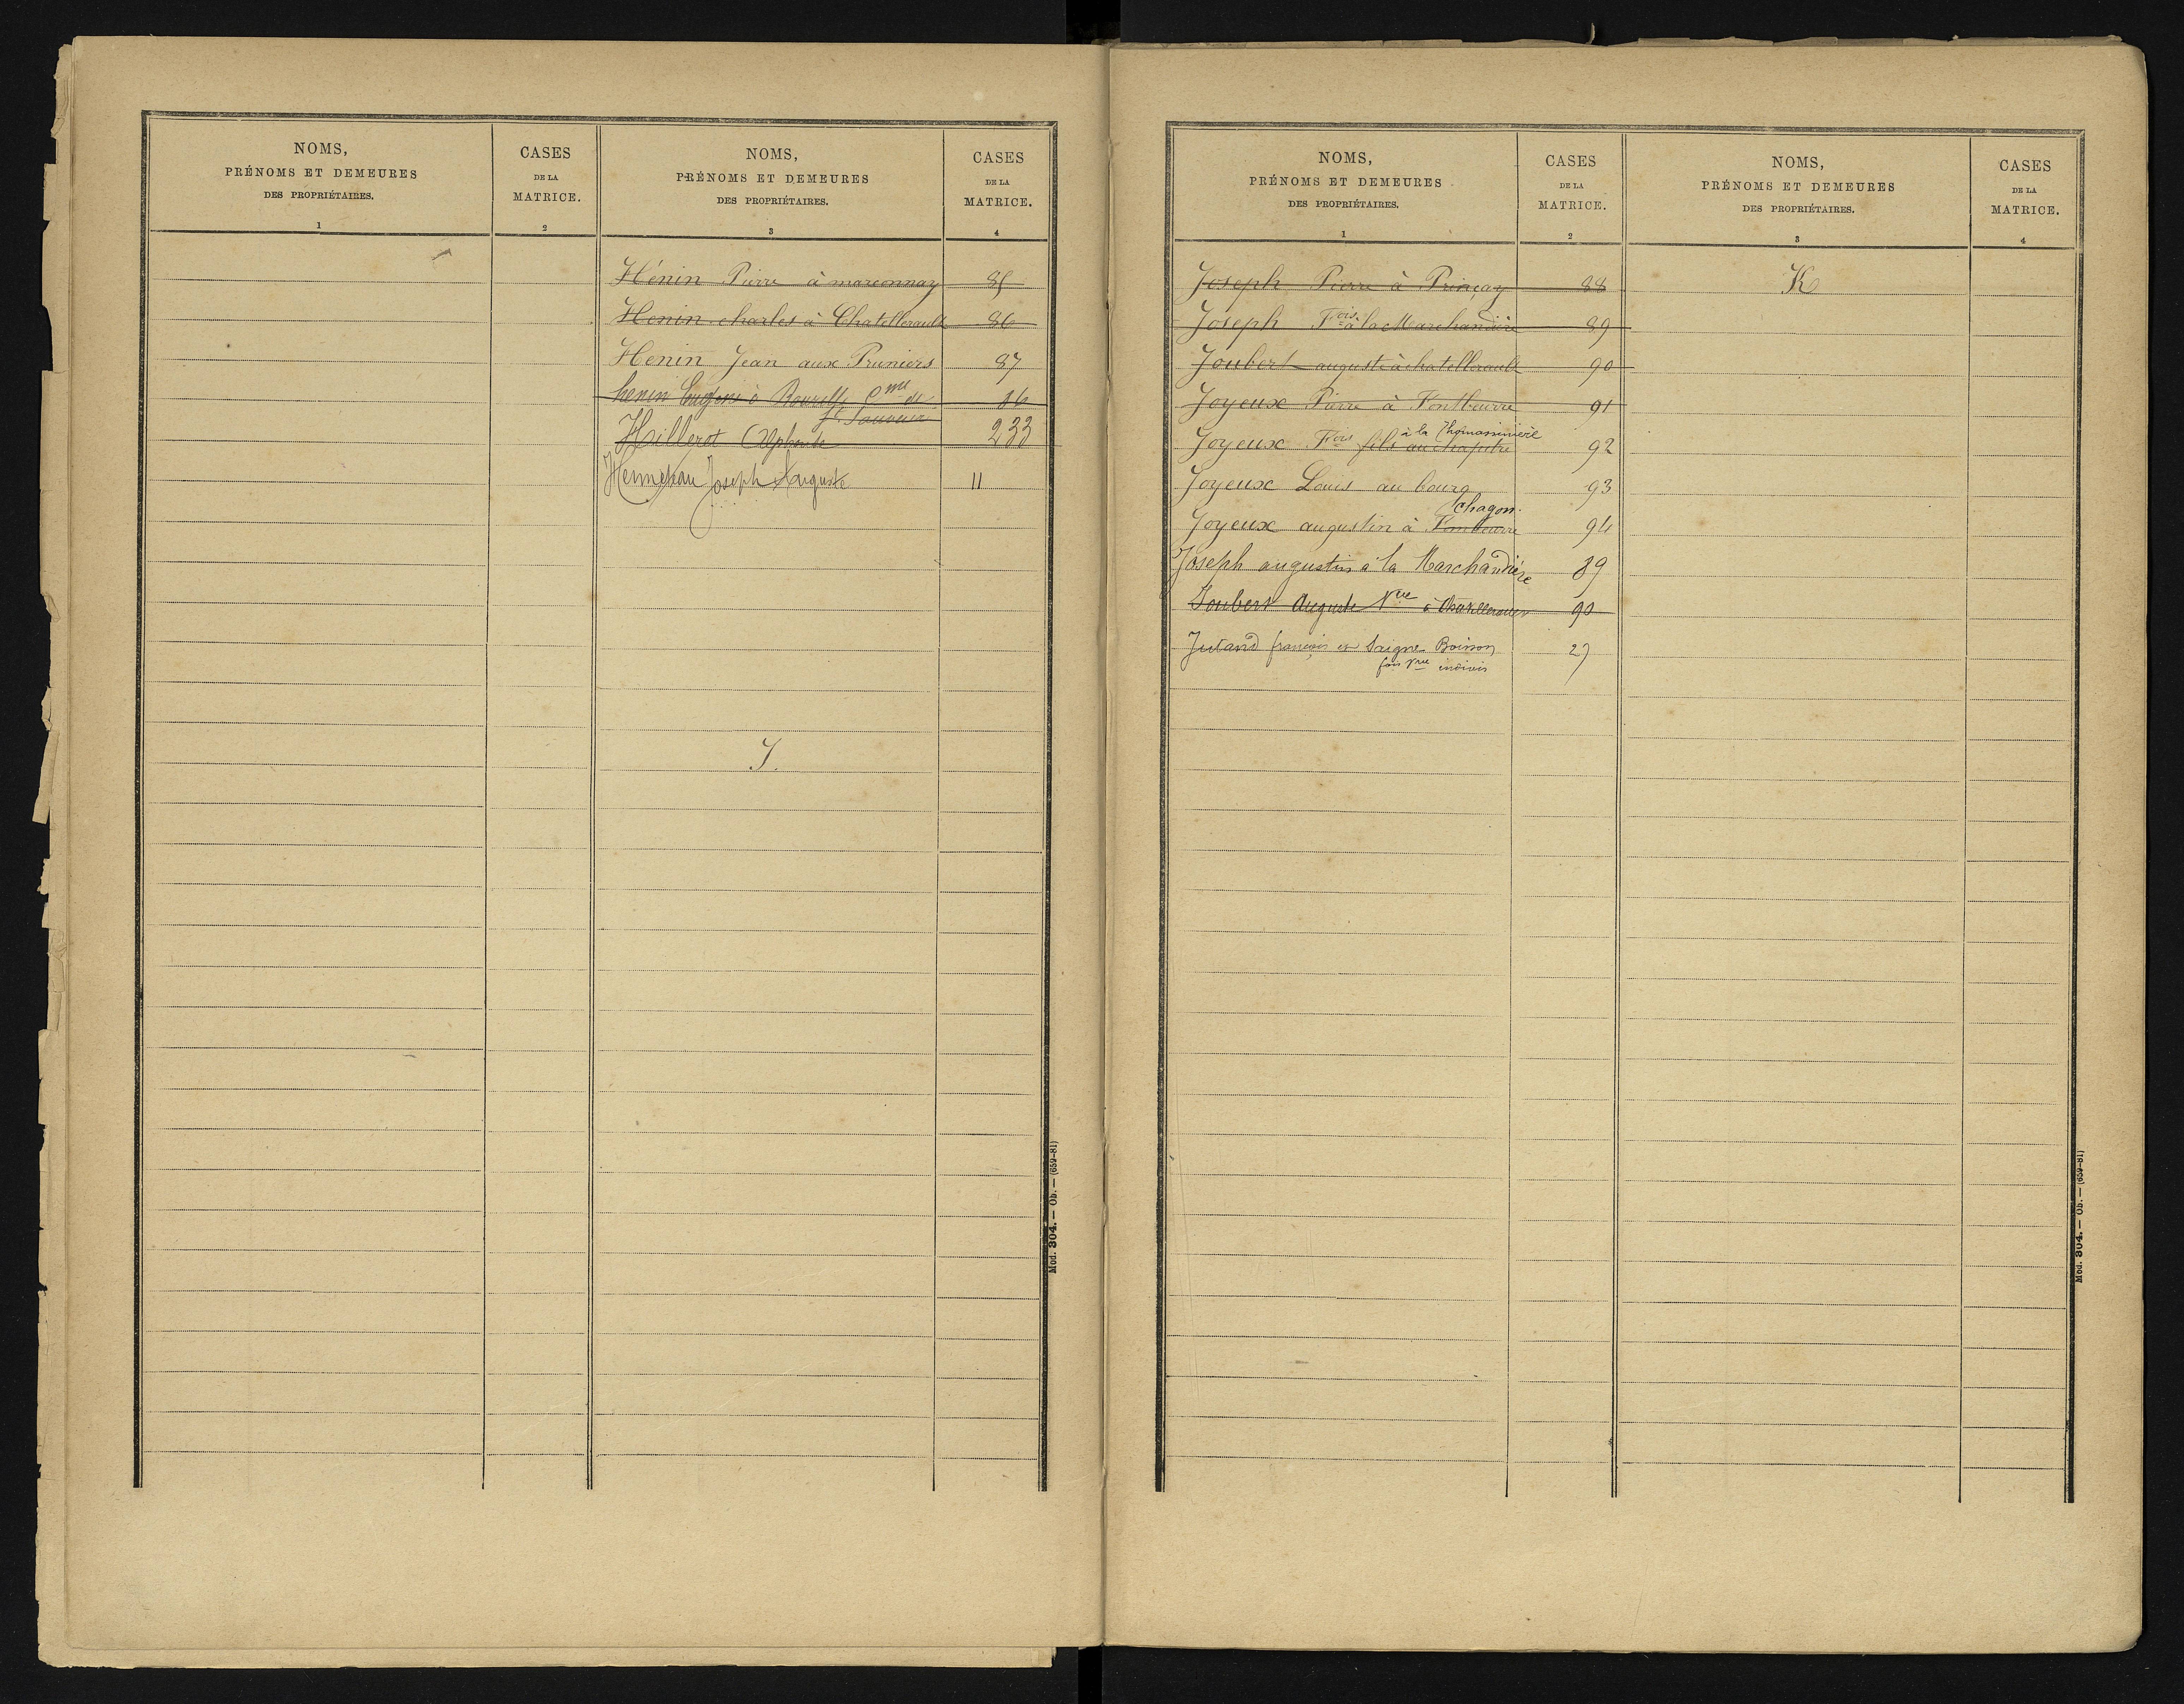 NOMS,
PRÉNOMS ET DEMEURES
DES PROPRIÉTAIRES.
1
CASES
DE LA
MATRICE.
2
NOMS,
PRÉNOMS ET DEMEURES
DES PROPRIÉTAIRES.
3
CASES
DE LA
MATRICE.
4
Hénin Pierre à marconnay 85
Henin charles à Chatellerault 86
Henin Jean aux Pruniers 87
henin Eugène à Bourelly Cme de 86
St Sauveur
Hilleret Alphonse 233
Joseph Auguste 11
J.
Mod. 304. — Ob. — (659-81)
NOMS,
PRÉNOMS ET DEMEURES
DES PROPRIÉTAIRES.
1
CASES
DE LA
MATRICE.
2
NOMS,
PRÉNOMS ET DEMEURES
DES PROPRIÉTAIRES.
3
CASES
DE LA
MATRICE.
4
Joseph Pierre à Prinçay 88
Joseph Fois à la Marchandière 89
Joubert auguste à chatellerault 90
Joyeux Pierre à Fontbeurre 91
à la Thomassinière
Joyeux Fois fils au chapitre 92
Joyeux Louis au bourg 93
Chagon.
Joyeux augustin à Fontbeurre 94
Joseph augustin à la Marchandière 89
Joubert Auguste Vve à Chatellerault 90
Jutand françois et Saigne Boisson 27
fois Vve indivis
K
Mod. 304. — Ob. — (659-81)